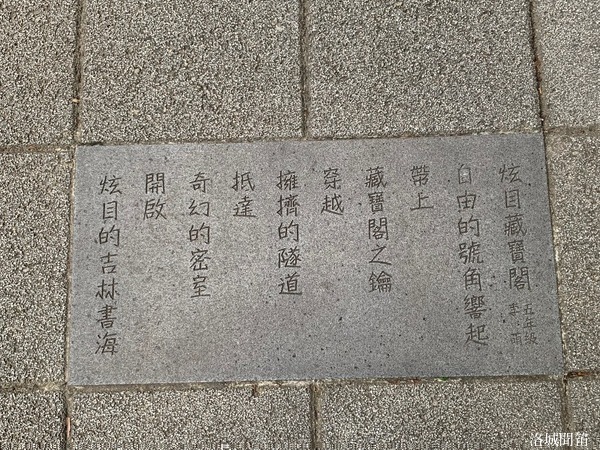 炫目藏寶閣
五年級
李雨
自由的號角響起
帶上
藏寶閣之鑰
穿越
擁擠的隧道
抵達
奇幻的密室
開啟
炫目的吉林書海
洛城聞笛